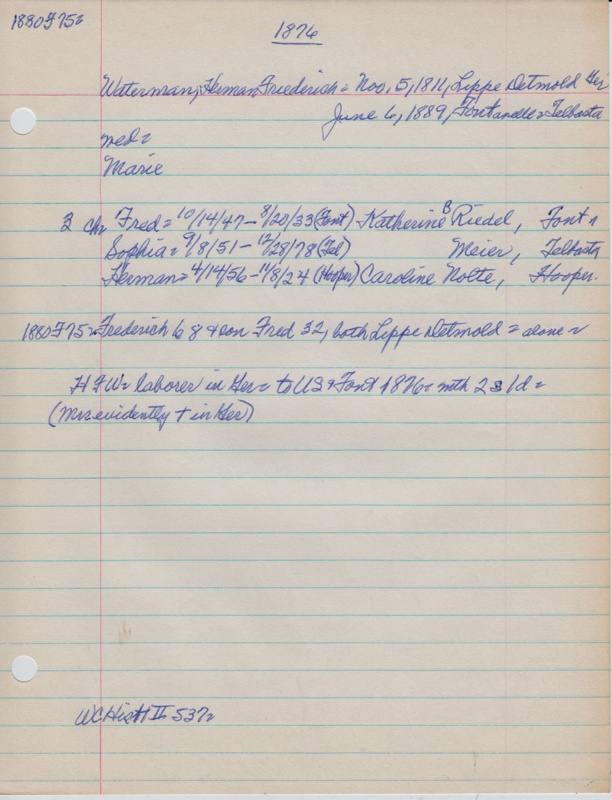 1880F75=
1876
Waterman, Herman Friederich = Nov. 5, 1811, Lippe Detmold Ger
June 6, 1889, Fontanelle = Telbasta
wed =
Marie
3 ch = Fred = 10/14/47 - 8/20/33 (Font) Katherine B Riedel, Font =
Sophia = 9/8/51 - 12/28/78 (Tel) Meier, Telbasta
Herman = 4/14/56 - 11/8/24 (Hooper) Caroline Nolte, Hooper.
1880F75 = Frederich 68 & son Fred 32, both Lippe Detmold = alone =
HFW = laborer in Ger = to US & Font 1876 = with 2s 1d =
(Mrs evidently + in Ger)
WCHist II 537=